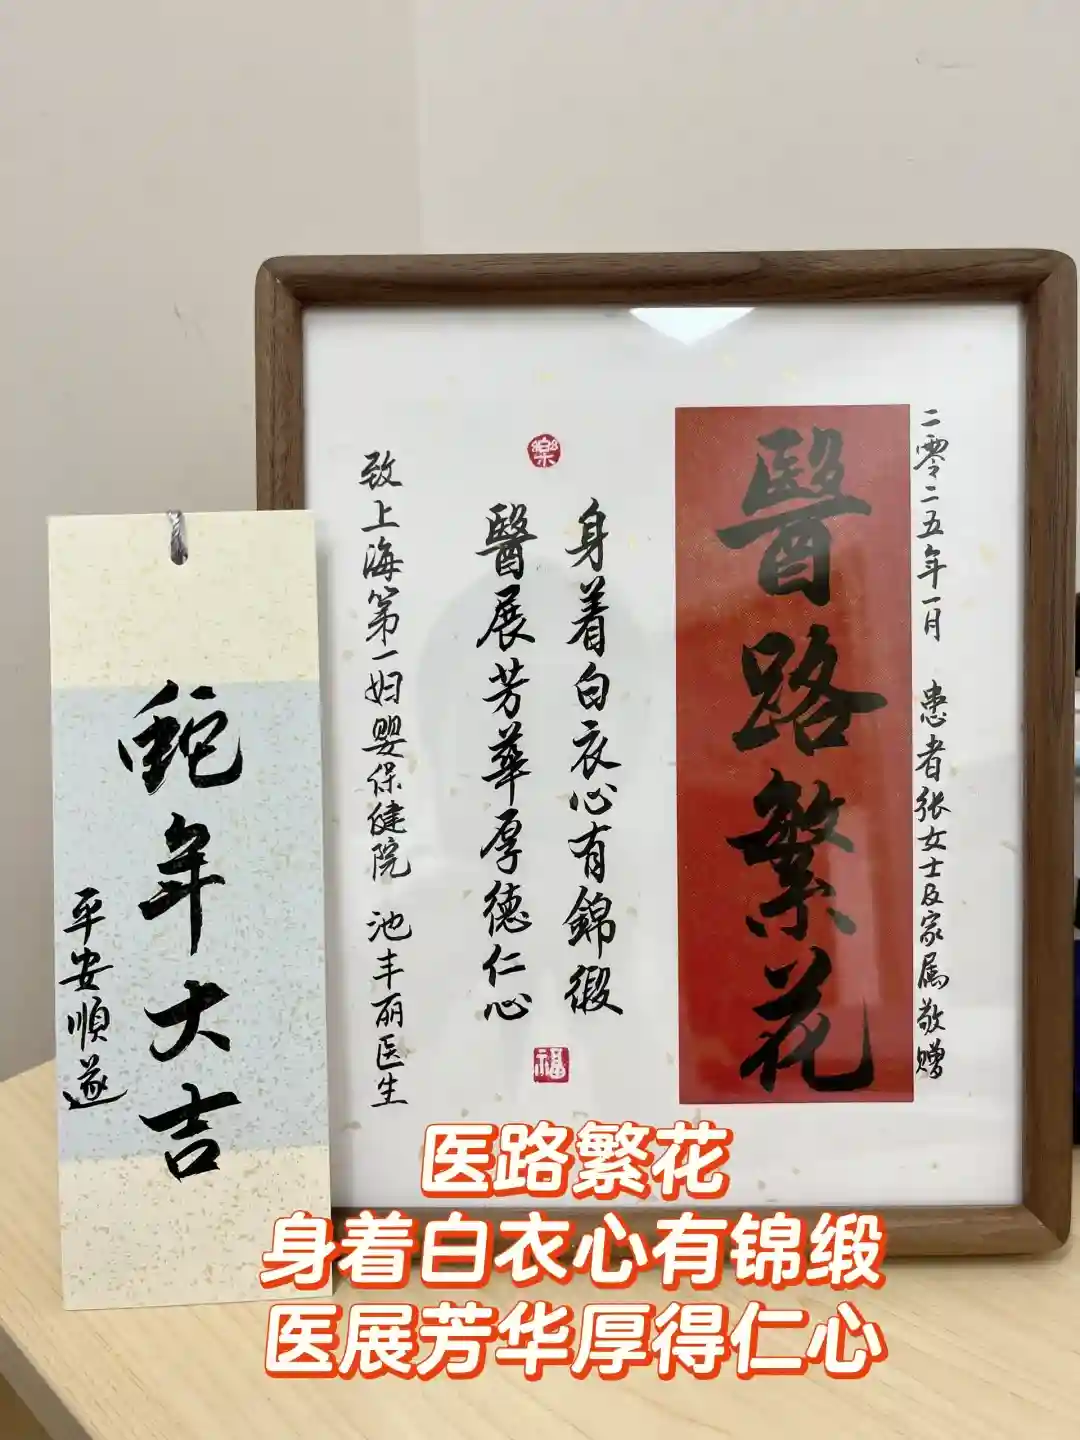 二零二五年一月 患者张女士及家属敬赠
醫路繁花
樂
身着白衣心有錦緞
醫展芳華厚德仁心
福
致上海第一妇婴保健院 池丰丽医生
蛇年大吉
平安順遂
医路繁花
身着白衣心有锦缎
医展芳华厚得仁心